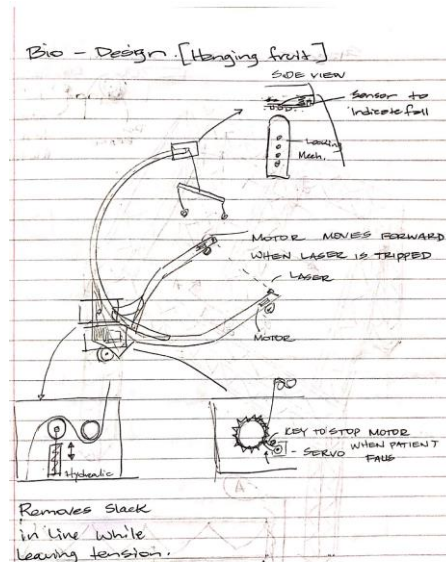 Bio - Design. [Hanging fruit]
SIDE VIEW
Sensor to
indicate fall
Loading
Mech.
MOTOR MOVES FORWARD
WHEN LASER IS TRIPPED
LASER
MOTOR
Hydraulic
KEY TO STOP MOTOR
- SERVO WHEN PATIENT
FALLS
A
Removes Slack
in line while
leaving tension.